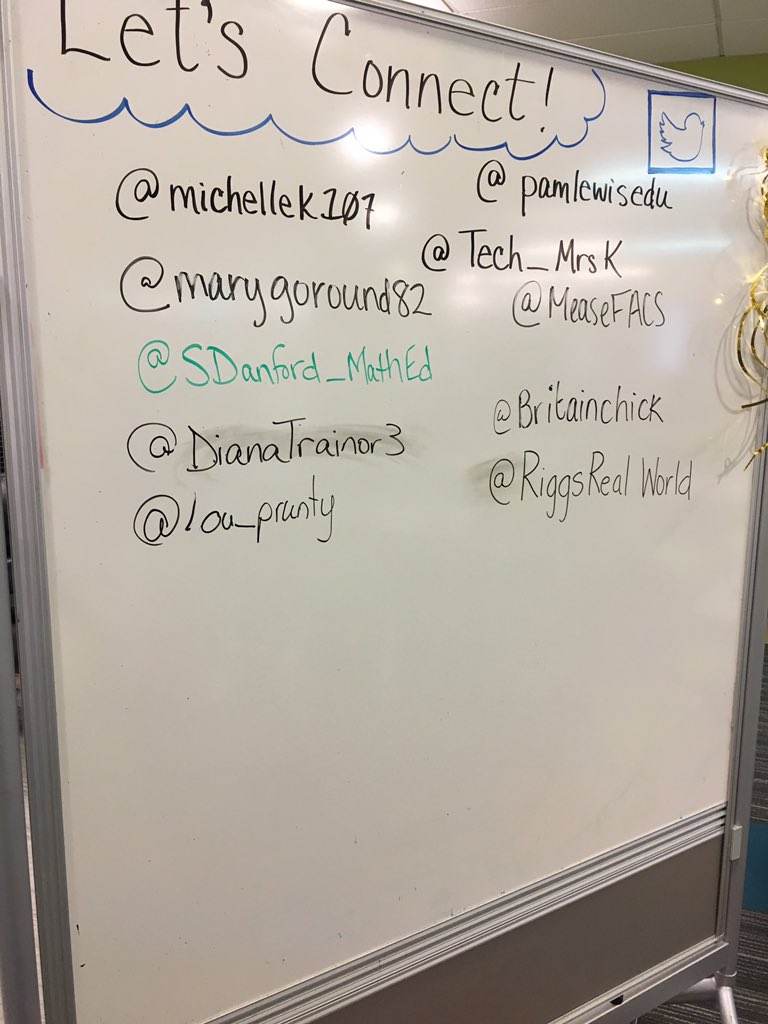 Let's Connect!
@michellek107
@pamlewisedu
@Tech_MrsK
@marygoround82
@MeaseFACS
@SDanford_MathEd
@Britainchick
@DianaTrainor3
@RiggsRealWorld
@lou_prunty